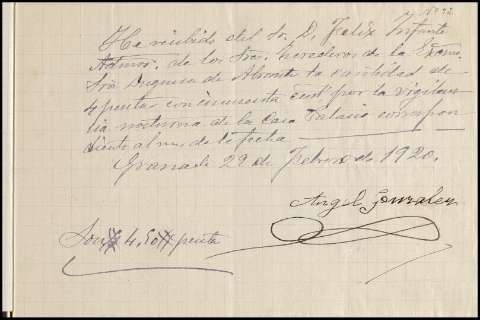 y Nº 92.
He recibido del Sr. D. Felix Infante
de los Sres. herederos de la Excma.
Sra Duquesa de Abrantes la cantidad de
4 pesetas con cincuenta cent. por la vigilan
cia nocturna de la Casa Palacio correspon
diente al mes de la fecha.
Granada 29 de Febrero de 1920.
Angel Gonzalez
Son 4,50 pesetas